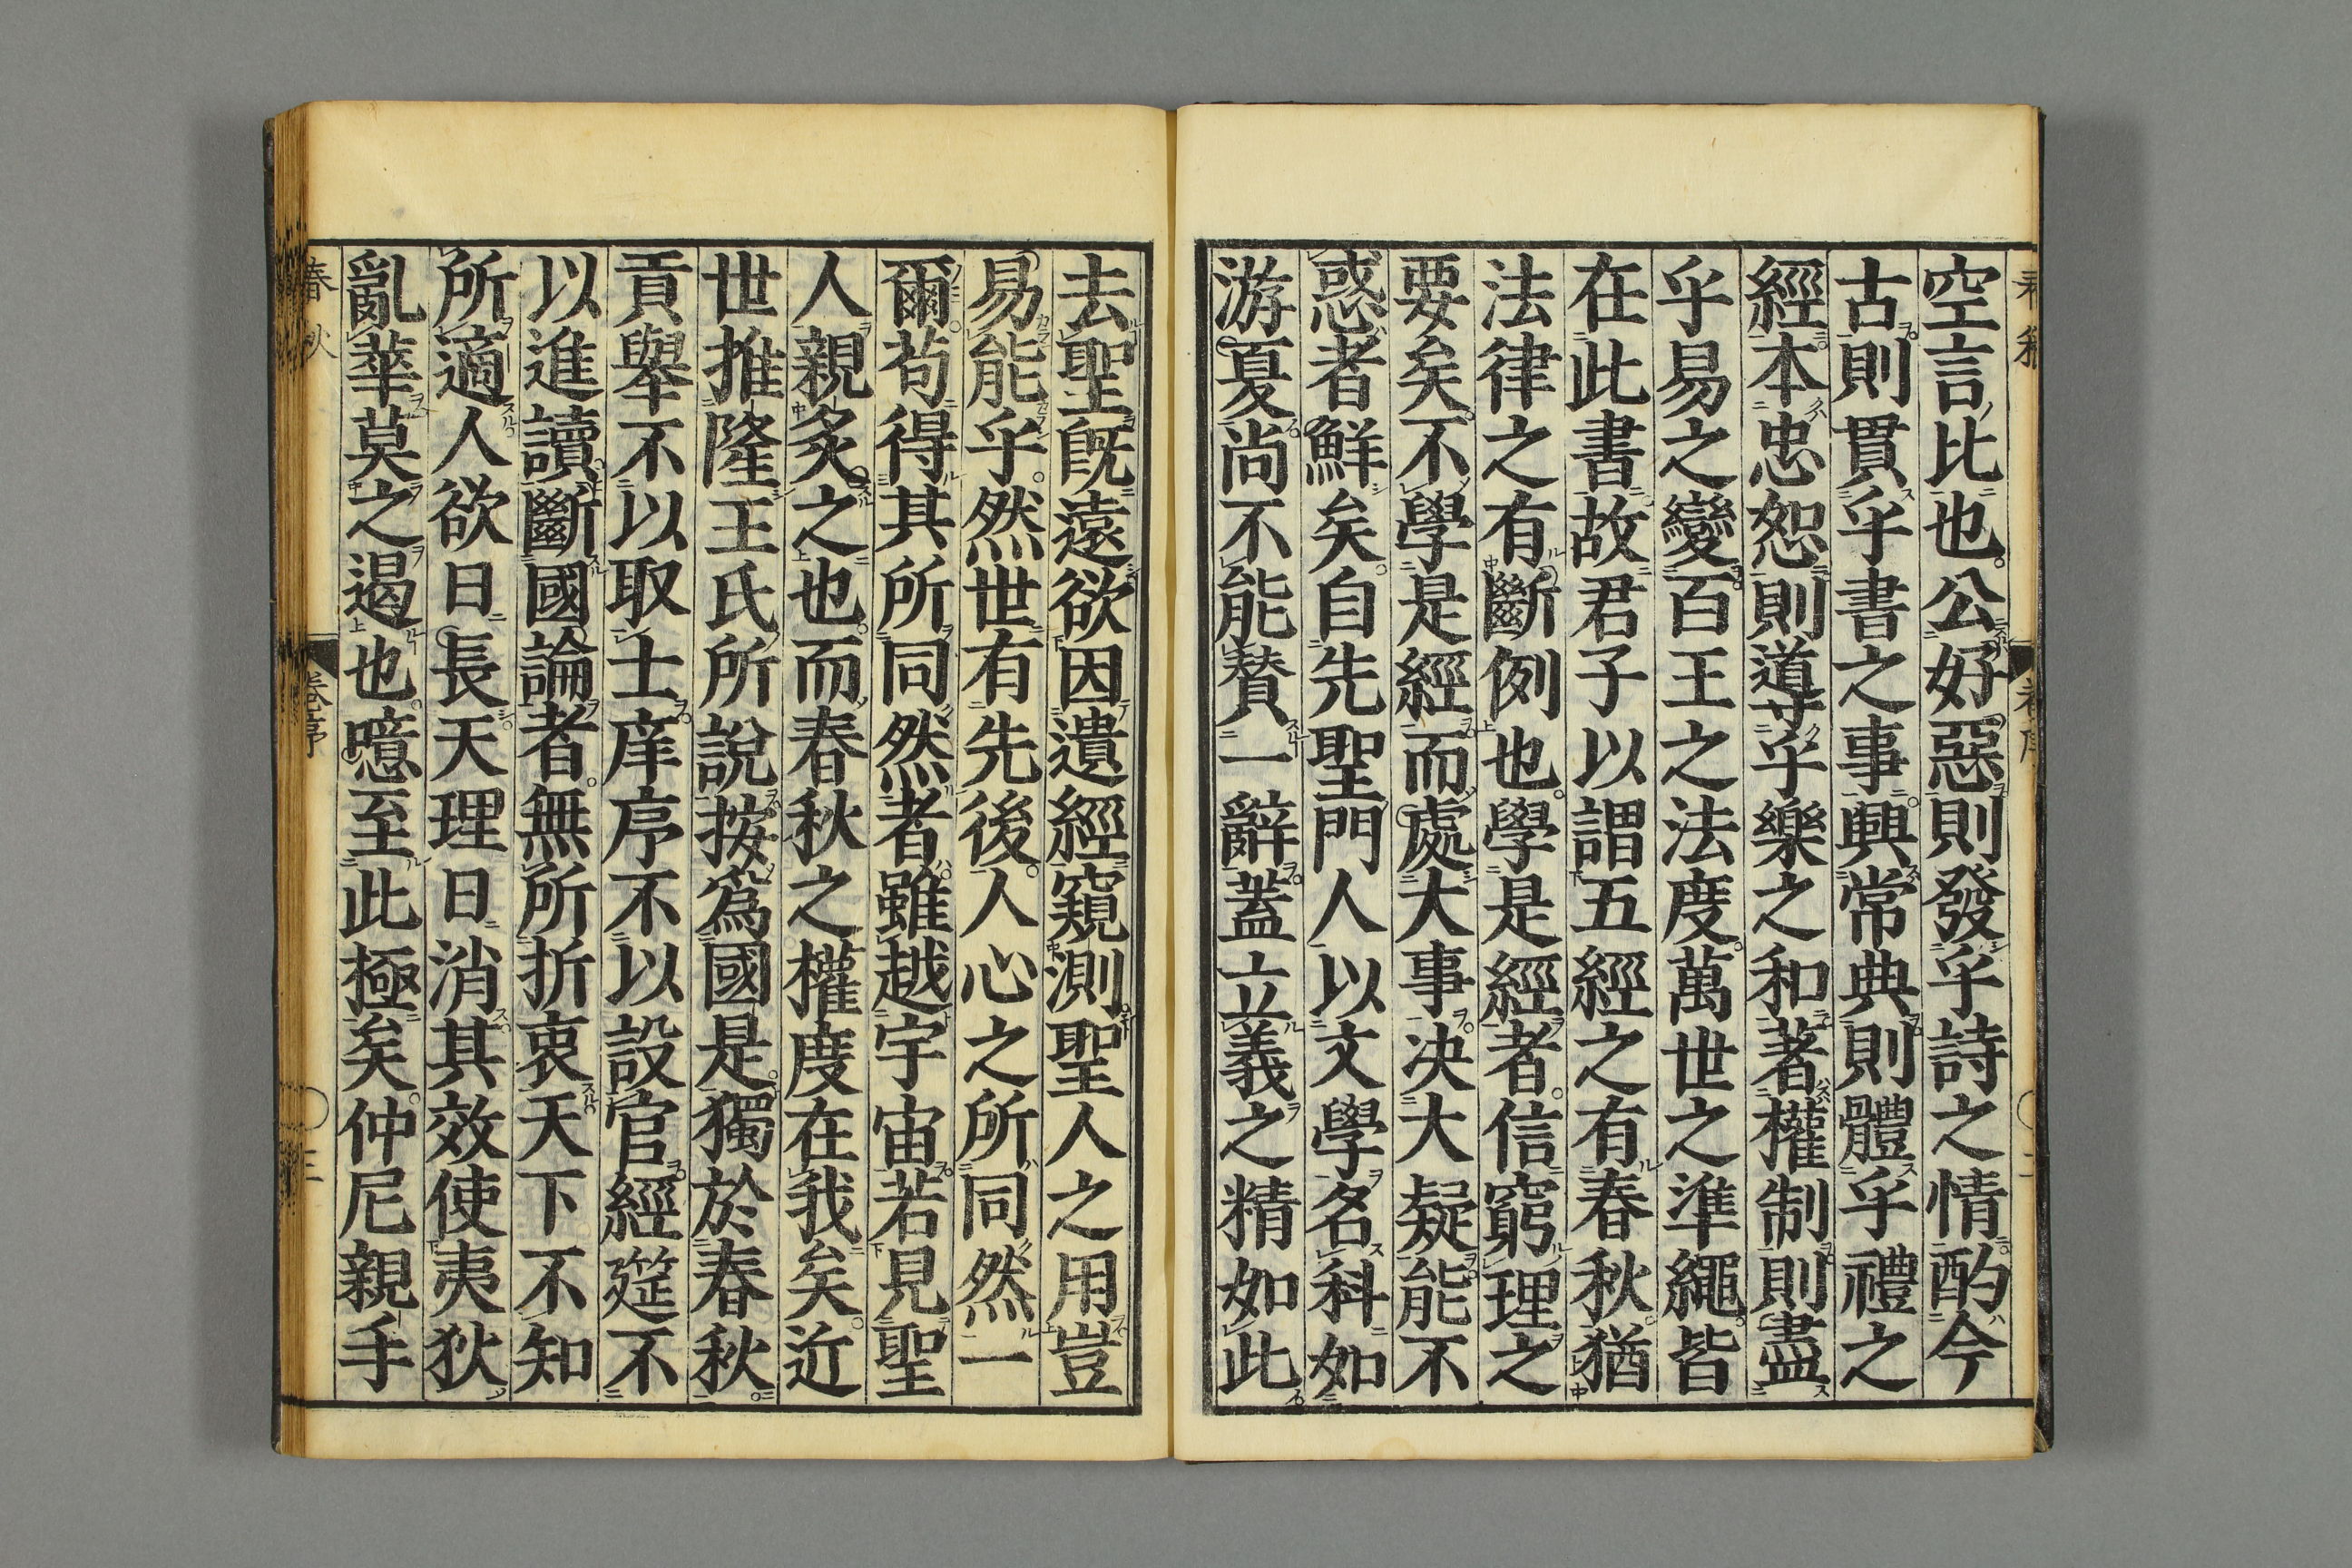 空言比也公好惡則發乎詩之情酌今
古則貫乎書之事興常典則體乎禮之
經本忠恕則導乎樂之和著權制則盡
乎易之變百王之法度萬世之準繩皆
在此書故君子以謂五經之有春秋猶
法律之有斷例也學是經者信窮理之
要矣不學是經而處大事决大疑能不
惑者鮮矣自先聖門人以文學名科如
游夏尚不能賛一辭蓋立義之精如此
去聖旣遠欲因遺經窺測聖人之用豈
易能乎然世有先後人心之所同然一
爾茍得其所同然者雖越宇宙若見聖
人親炙之也而春秋之權度在我矣近
世推隆王氏所說按爲國是獨於春秋
貢舉不以取士庠序不以設官經筵不
以進讀斷國論者無所折衷天下不知
所適人欲日長天理日消其效使夷狄
亂華莫之遏也噫至此極矣仲尼親手
春秋
卷序
三